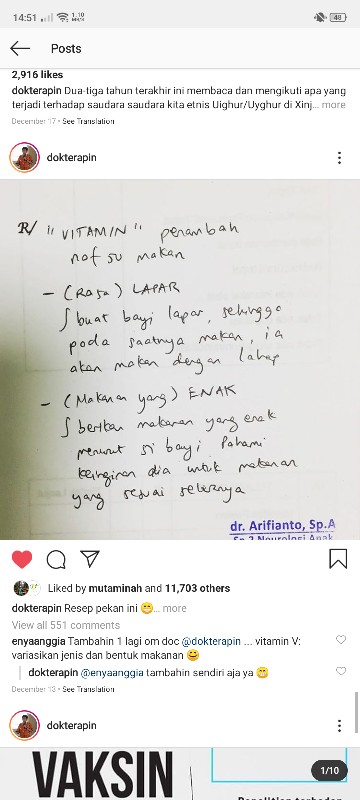 14:51
1.10
MB/S
48
Posts
2,916 likes
dokterapin Dua-tiga tahun terakhir ini membaca dan mengikuti apa yang
terjadi terhadap saudara saudara kita etnis Uighur/Uyghur di Xinj... more
December 17 • See Translation
dokterapin
R/ "VITAMIN" penambah
nafsu makan
- (Rasa) LAPAR
∫ buat bayi lapar, sehingga
pada saatnya makan, ia
akan makan dengan lahap
- (Makanan yang) ENAK
∫ berikan makanan yang enak
menurut si bayi. Pahami
keinginan dia untuk makanan
yang sesuai seleranya
dr. Arifianto, Sp.A
Liked by mutaminah and 11,703 others
dokterapin Resep pekan ini 😁... more
View all 551 comments
enyaanggia Tambahin 1 lagi om doc @dokterapin ... vitamin V:
variasikan jenis dan bentuk makanan 😄
dokterapin @enyaanggia tambahin sendiri aja ya 😁
December 13 • See Translation
dokterapin
VAKSIN
1/10